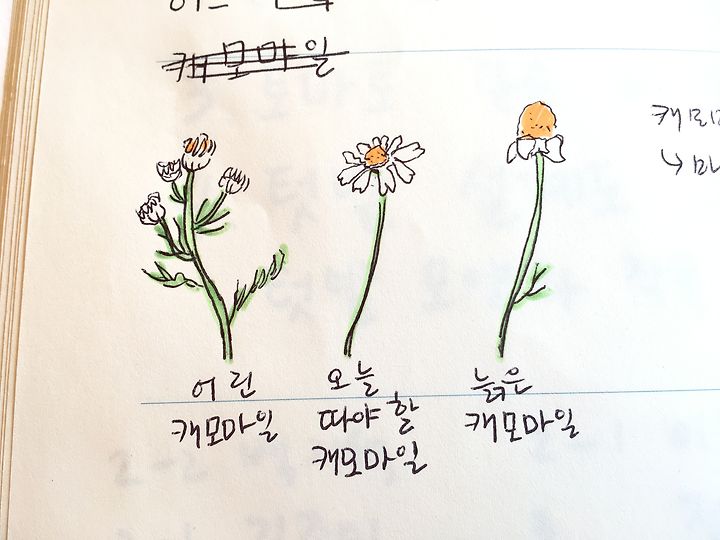 캐모마일
어린
캐모마일
오늘
따야 할
캐모마일
늙은
캐모마일